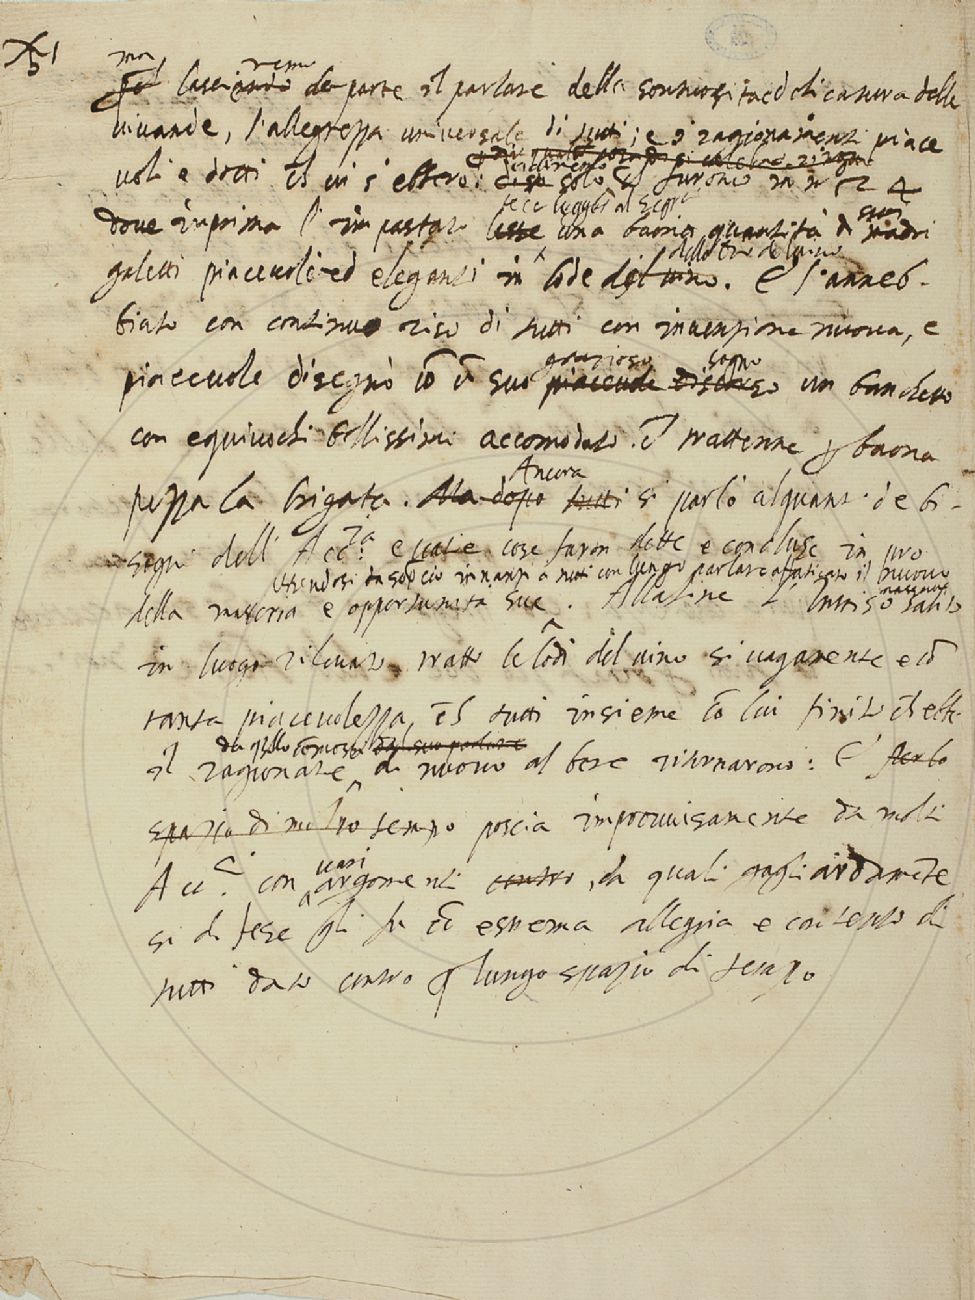 ma
lasciaremo da parte il parlare della sontuosità ed dilicatura delle
vivande, l'allegrezza universale di tutti; e i ragionamenti piace
voli e dotti ch vi s'ebbero: solo furono in n°
dove inprima l'impastato fece leggere al Segr° una buona quantità di suoi madri
galetti piacevoli ed eleganti in lode del vino. E l'anneb-
biato con continuo riso di tutti con invenzione nuova, e
piacevole disegnò cō ū suo grazioso sogno un banchetto
con equivochi bellissimi accomodato. E trattenne p buona
pezza la brigata. Ma dopo tutti Ancora si parlò alquanto de bi-
sogni dell' Accͫⁱᵃ e varie cose furon dette e concluse in pro
essendosi da sopciò innanzi a tutti con lungo parlare affaticato il nuovo
della materia e opportunità sue. Allafine l'Intriso salito
in luogo rilevato trattò le lodi del vino si vagamente e cō
tanta piacevolezza, ch tutti insieme cō lui finito ch ebbe
da qllo cōmossi dal suo parlare
il ragionare di nuovo al bere ritornarono: E
spazio di molto tempo poscia improvvisamente da molti
Accͥ. con vari argomenti contro, da quali gagliardamēte
si difese gli fu cō estrema allegria e contento di
tutti dato contro p lungo spazio di tempo